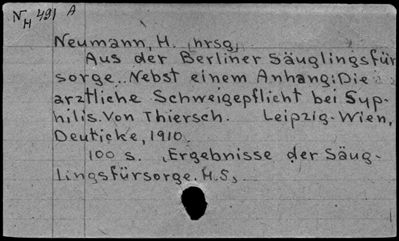 N/H 491 A
Neumann, H. (hrsg)
Aus der Berliner Säuglingsfür
sorge.. Nebst einem Anhang: Die
arztliche Schweigepflicht bei Syp-
hilis. Von Thiersch. Leipzig-Wien,
Deuticke, 1910.
100 s. (Ergebnisse der Säug-
lingsfürsorge. H.5)